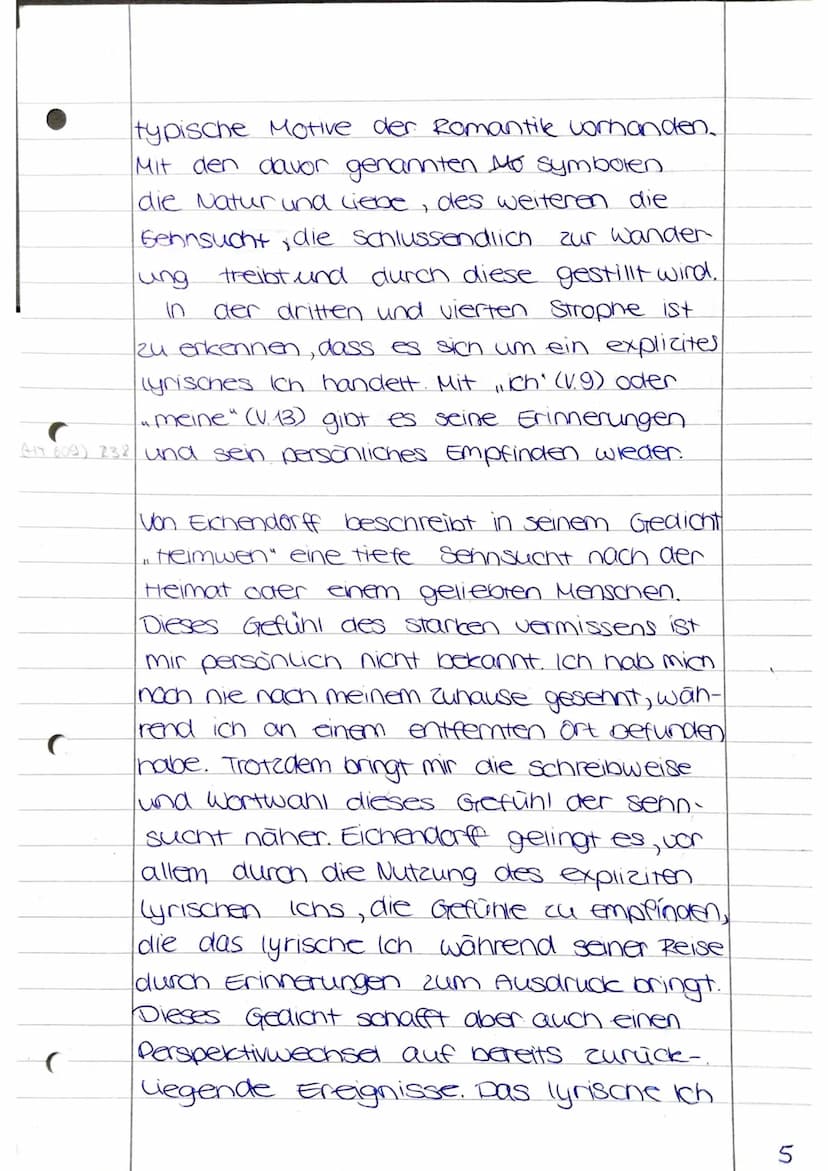 typische Motive der Romantik vorhanden.
Mit den davor genannten Mo Symbolen
die Natur und Liebe, des weiteren die
Sehnsucht, die schlussendlich zur Wander-
ung treibt und durch diese gestillt wird.
In der dritten und vierten Strophe ist
zu erkennen, dass es sich um ein explizites
lyrisches Ich handelt. Mit „ich' (V.9) oder
„meine" (V.13) gibt es seine Erinnerungen
und sein persönliches Empfinden wieder.
Von Eichendorff beschreibt in seinem Gedicht
„Heimweh" eine tiefe Sehnsucht nach der
Heimat oder einem geliebten Menschen.
Dieses Gefühl des starken vermissens ist
mir persönlich nicht bekannt. Ich hab mich
noch nie nach meinem Zuhause gesehnt, wäh-
rend ich an einem entfernten Ort befunden
habe. Trotzdem bringt mir die Schreibweise
und Wortwahl dieses Gefühl der Sehn-
sucht näher. Eichendorff gelingt es, vor
allem durch die Nutzung des expliziten
lyrischen Ichs, die Gefühle zu empfinden,
die das lyrische Ich während seiner Reise
durch Erinnerungen zum Ausdruck bringt.
Dieses Gedicht schafft aber auch einen
Perspektivwechsel auf bereits zurück-
liegende Ereignisse. Das lyrische Ich
5